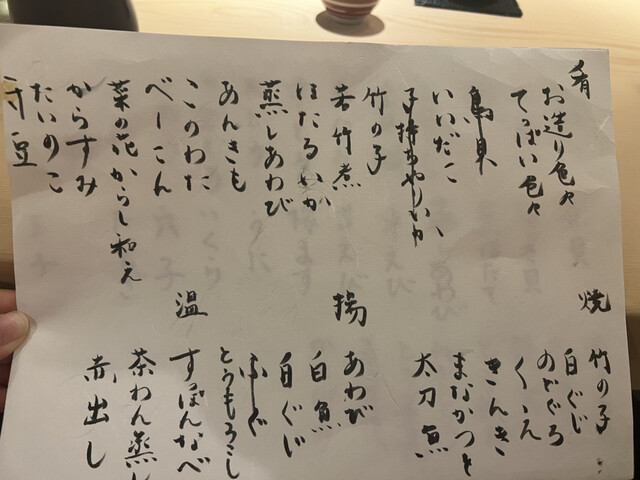 肴
お造り色々
てっぱい色々
鳥貝
いいだこ
子持ちやりいか
竹の子
若竹煮
ほたるいか
蒸しあわび
あんきも
このわた
べーこん
菜の花からし和え
からすみ
たいのこ
焼
竹の子
白ぐじ
のどぐろ
くえ
きんき
まなかつを
太刀魚
揚
あわび
白魚
白ぐじ
ふぐ
とうもろこし
温
すっぽんなべ
茶わん蒸し
赤出し